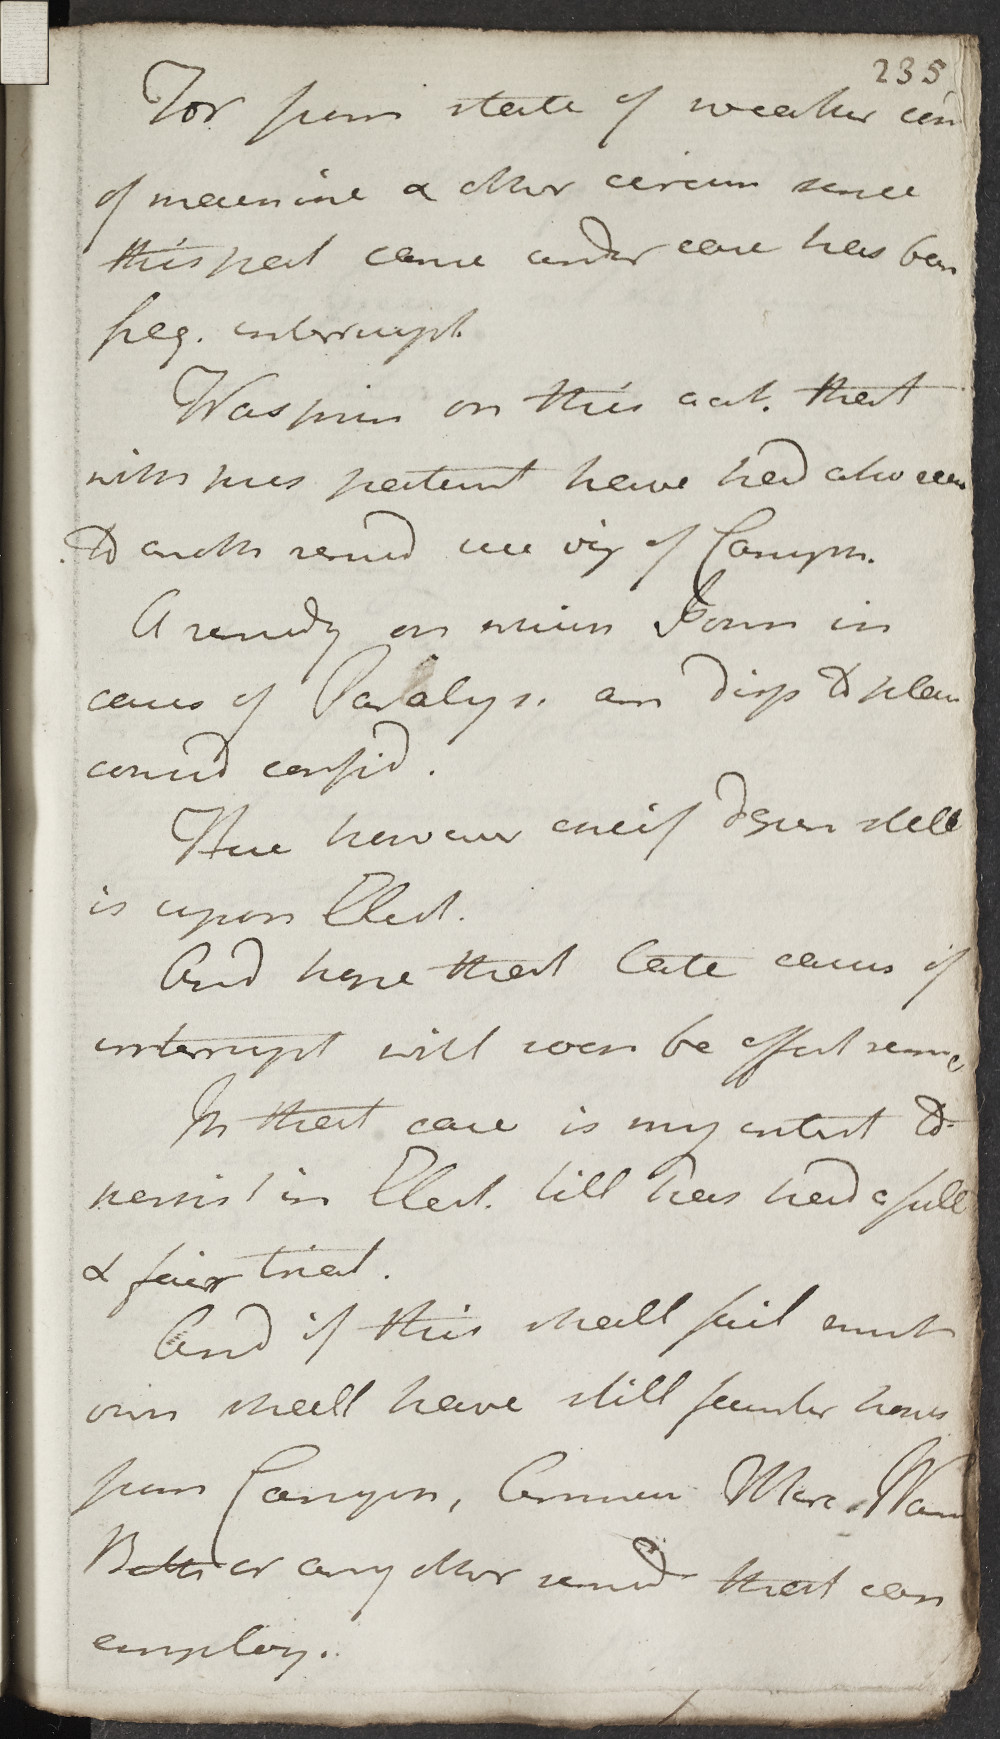 235
For from state of weather con
of machine & other circum since
this pat came under care has been
freq. interrupt.
Was prin on this acct. that
with this patient have had also recour
to anoth remed viz of Camph.
A remedy on which I own in
cases of Paralys. am disp to place
consid confid.
Here however chief depen still
is upon Elect.
And hope that late causes of
interrupt will soon be effect remov
In that case is my intent to
persist in Elect. till has had a full
& fair trial.
And if this shall fail must
own shall have still fainter hopes
from Camph, Ammon Merc Warm
Baths or any other remed that can
employ.